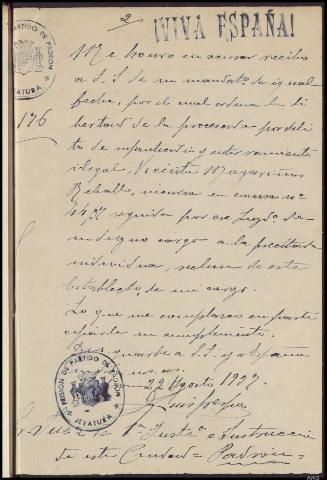 2
¡VIVA ESPAÑA!
PARTIDO DE PADRON
JEFATURA
Me honro en acusar recibo
a S.S. de su mandatº de igual
fecha, por el cual ordena la li
176
bertad de la procesada por deli
to de infanticidio y enterramiento
ilegal, Vicenta Magariños
Rebollo, incursa en causa nº
44 seguida por ese Juzgº de
su digno cargo a la precitada
individua, reclusa de este
Establectº de mi cargo.
Lo que me complazco en participarle
en cumplimiento.
Dios guarde a S.S. 
22 Agosto 1937.
PRISION DE PARTIDO DE PADRON
JEFATURA
Sr. Juez de 1ª Instª e Instrucción
de esta Ciudad = Padrón =